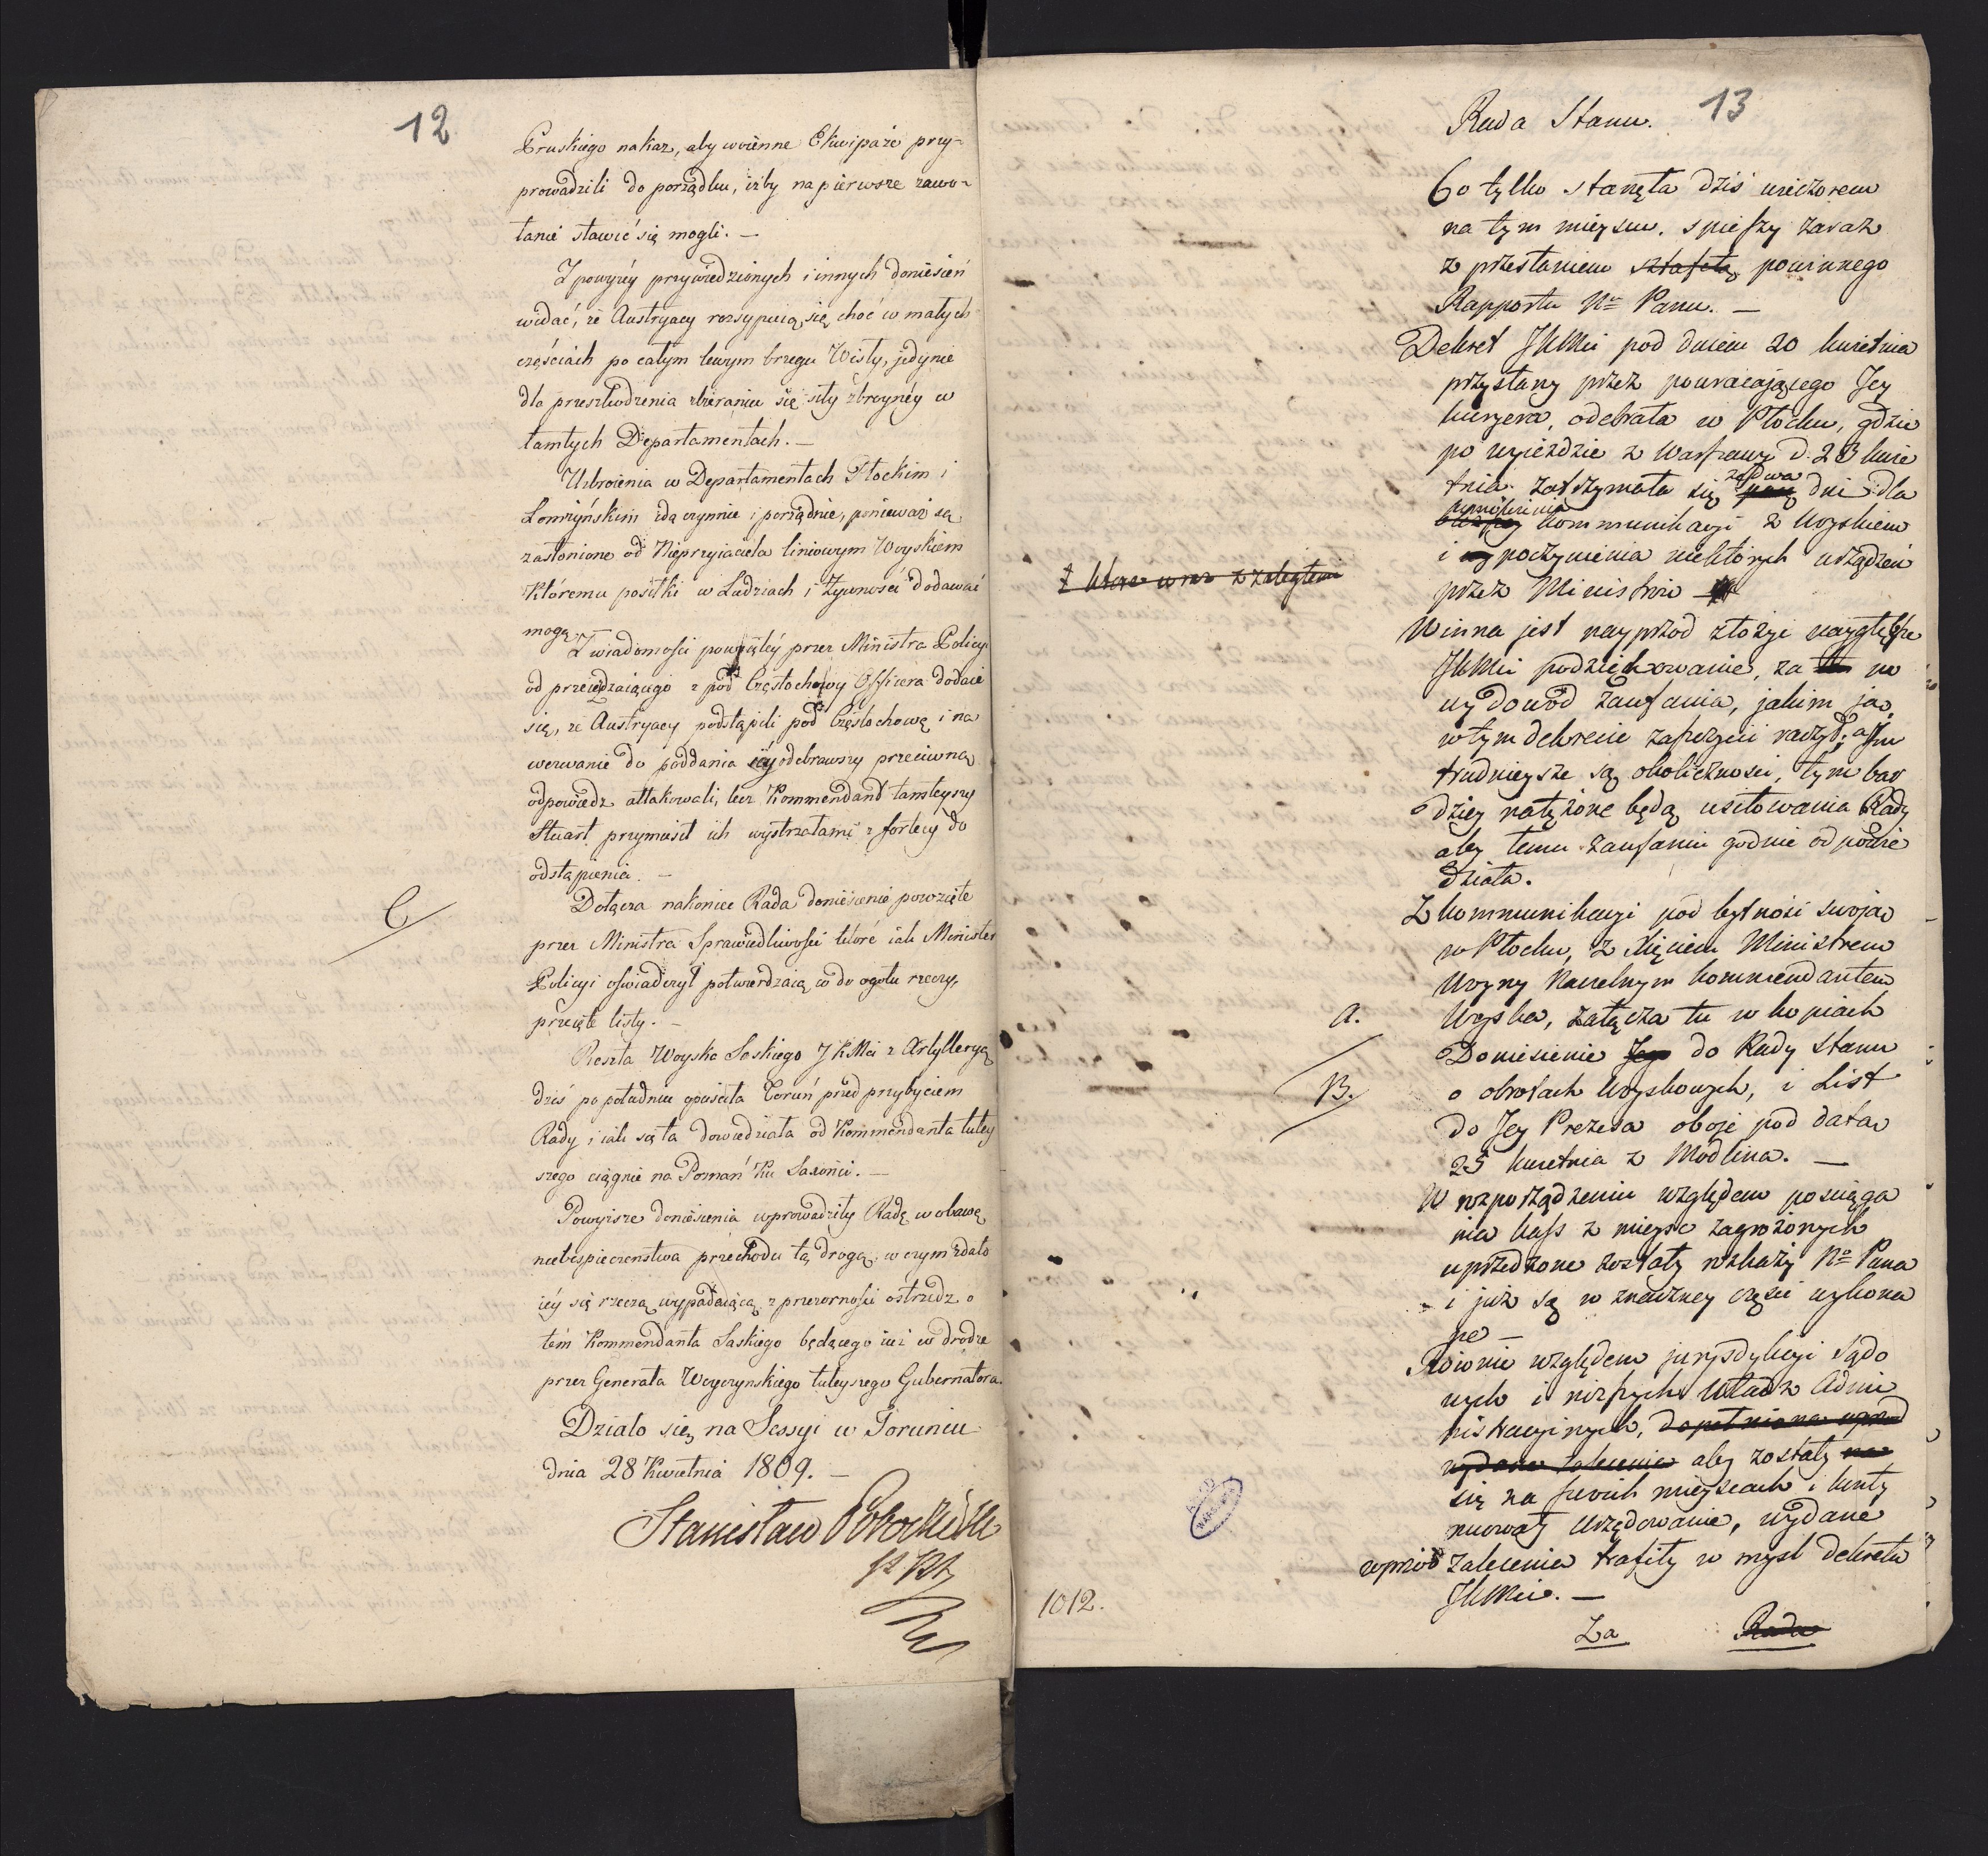 12
Pruskiego nakaz, aby woienne Ekwipaże przy-
prowadzili do porządku, iżby na pierwsze zawo-
łanie stawić się mogli. —
Z powyżey przywiedzionych i innych doniesień
widać, że Austryacy rozsypuią się choć w małych
częściach po całym lewym brzegu Wisły, jedynie
dla przeszkodzenia zbieraniu się siły zbroynéy w
tamtych Departamentach. —
Uzbroienia w Departamentach Płockim i
Łomżyńskim idą czynnie i porządnie, ponieważ są
zasłonione od Nieprzyiaciela liniowym Woyskiem
któremu posiłki w Ludziach i Żywności dodawać
mogą
Z wiadomości powziętéy przez Ministra Policyi
od przeieżdzaiącego z pod Częstochowy Officera dodaie
się, że Austryacy podstąpili pod Częstochowę i na
wezwanie do poddania się odebrawszy przeciwną
odpowiedz attakowali, lecz Kommendant tamteyszy
Stuart przymusił ich wystrzałami z fortecy do
odstąpienia. —
C/
Dołącza nakoniec Rada doniesienie powzięte
przez Ministra Sprawiedliwości które iak Minister
Policyi oświadczył potwierdzaią co do ogółu rzeczy,
przeięte listy. —
Reszta Woyska Saskiego JKMci z Artylleryą
dziś po południu opuściła Toruń przed przybyciem
Rady, i iak się ta dowiedziała od Kommendanta tutey
szego ciągnie na Poznań ku Saxonii. —
Powyższe doniesienia wprowadziły Radę w obawę
niebespieczenstwa przechodu tą drogą, w czym zdało
iéy się rzeczą wypadaiącą z przezorności ostrzedz o
tém Kommendanta Saskiego będącego iuż w drodze
przez Generała Woyczynskiego tuteyszego Gubernatora.
Działo się na Sessyi w Toruniu
dnia 28 Kwietnia 1809. —
Stanisław Potocki
13
Rada Stanu.
Co tylko stanęła dziś wieczorem
na tym mieyscu, spieszy zaraz
z przesłaniem sztafetą powinnego
Rapportu Nu Panu. —
Dekret JKMci pod dniem 20 kwietnia
przysłany przez powracającego Jey
kuryera, odebrała w Płocku, gdzie
po wyieździe z Warszawy d. 23 kwie
tnia zatrzymała się przez dwa dni dla
kommunikacyi z Woyskiem
i poczynienia niektórych urządzeń
przez Ministrów
‡ które wraz z zaległemi
Winna jest nayprzod złożyć nayglębsze
JKMci podziękowanie, za no
wy dowód zaufania, jakim ją
w tym dekrecie zaszczycić raczył; a im
trudnieysze są okoliczności, tym bar
dziey natężone będą usiłowania Rady
aby temu zaufaniu godnie odpowie
działa.
Z kommunikacyi pod bytność swoją
w Płocku, z Xięciem Ministrem
Woyny Naczelnym kommendantem
A.
Woyska, załącza tu w kopiach
Doniesienie Jego do Rady Stanu
B.
o obrotach Woyskowych, i List
do Jey Prezesa oboje pod datą
25 kwietnia z Modlina. —
W rozporządzeniu względem pościąga
nia kass z mieysc zagrożonych
uprzedzone zostały rozkazy Na Pana
i już są w znaczney części wykona
ne —
Równie względem jurysdykcyi Sądo
wych i niższych Władz Admi
nistracyinych, dopełniono wprzod
wydane zalecenie aby zostały na
się na swoich mieyscach i konty
nuowały urzędowanie, wydane
wprzód zalecenia trafiły w mysl dekretu
JKMci. —
Za Rada
1012.